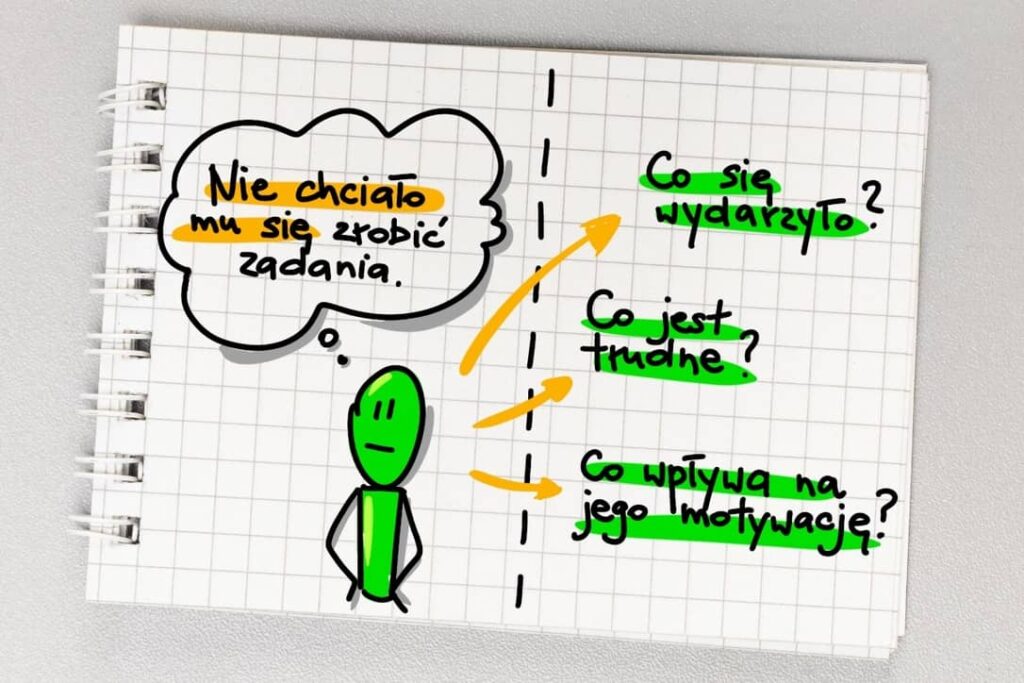 Nie chciało
mu się zrobić
zadania.
Co się
wydarzyło?
Co jest
trudne?
Co wpływa na
jego motywację?